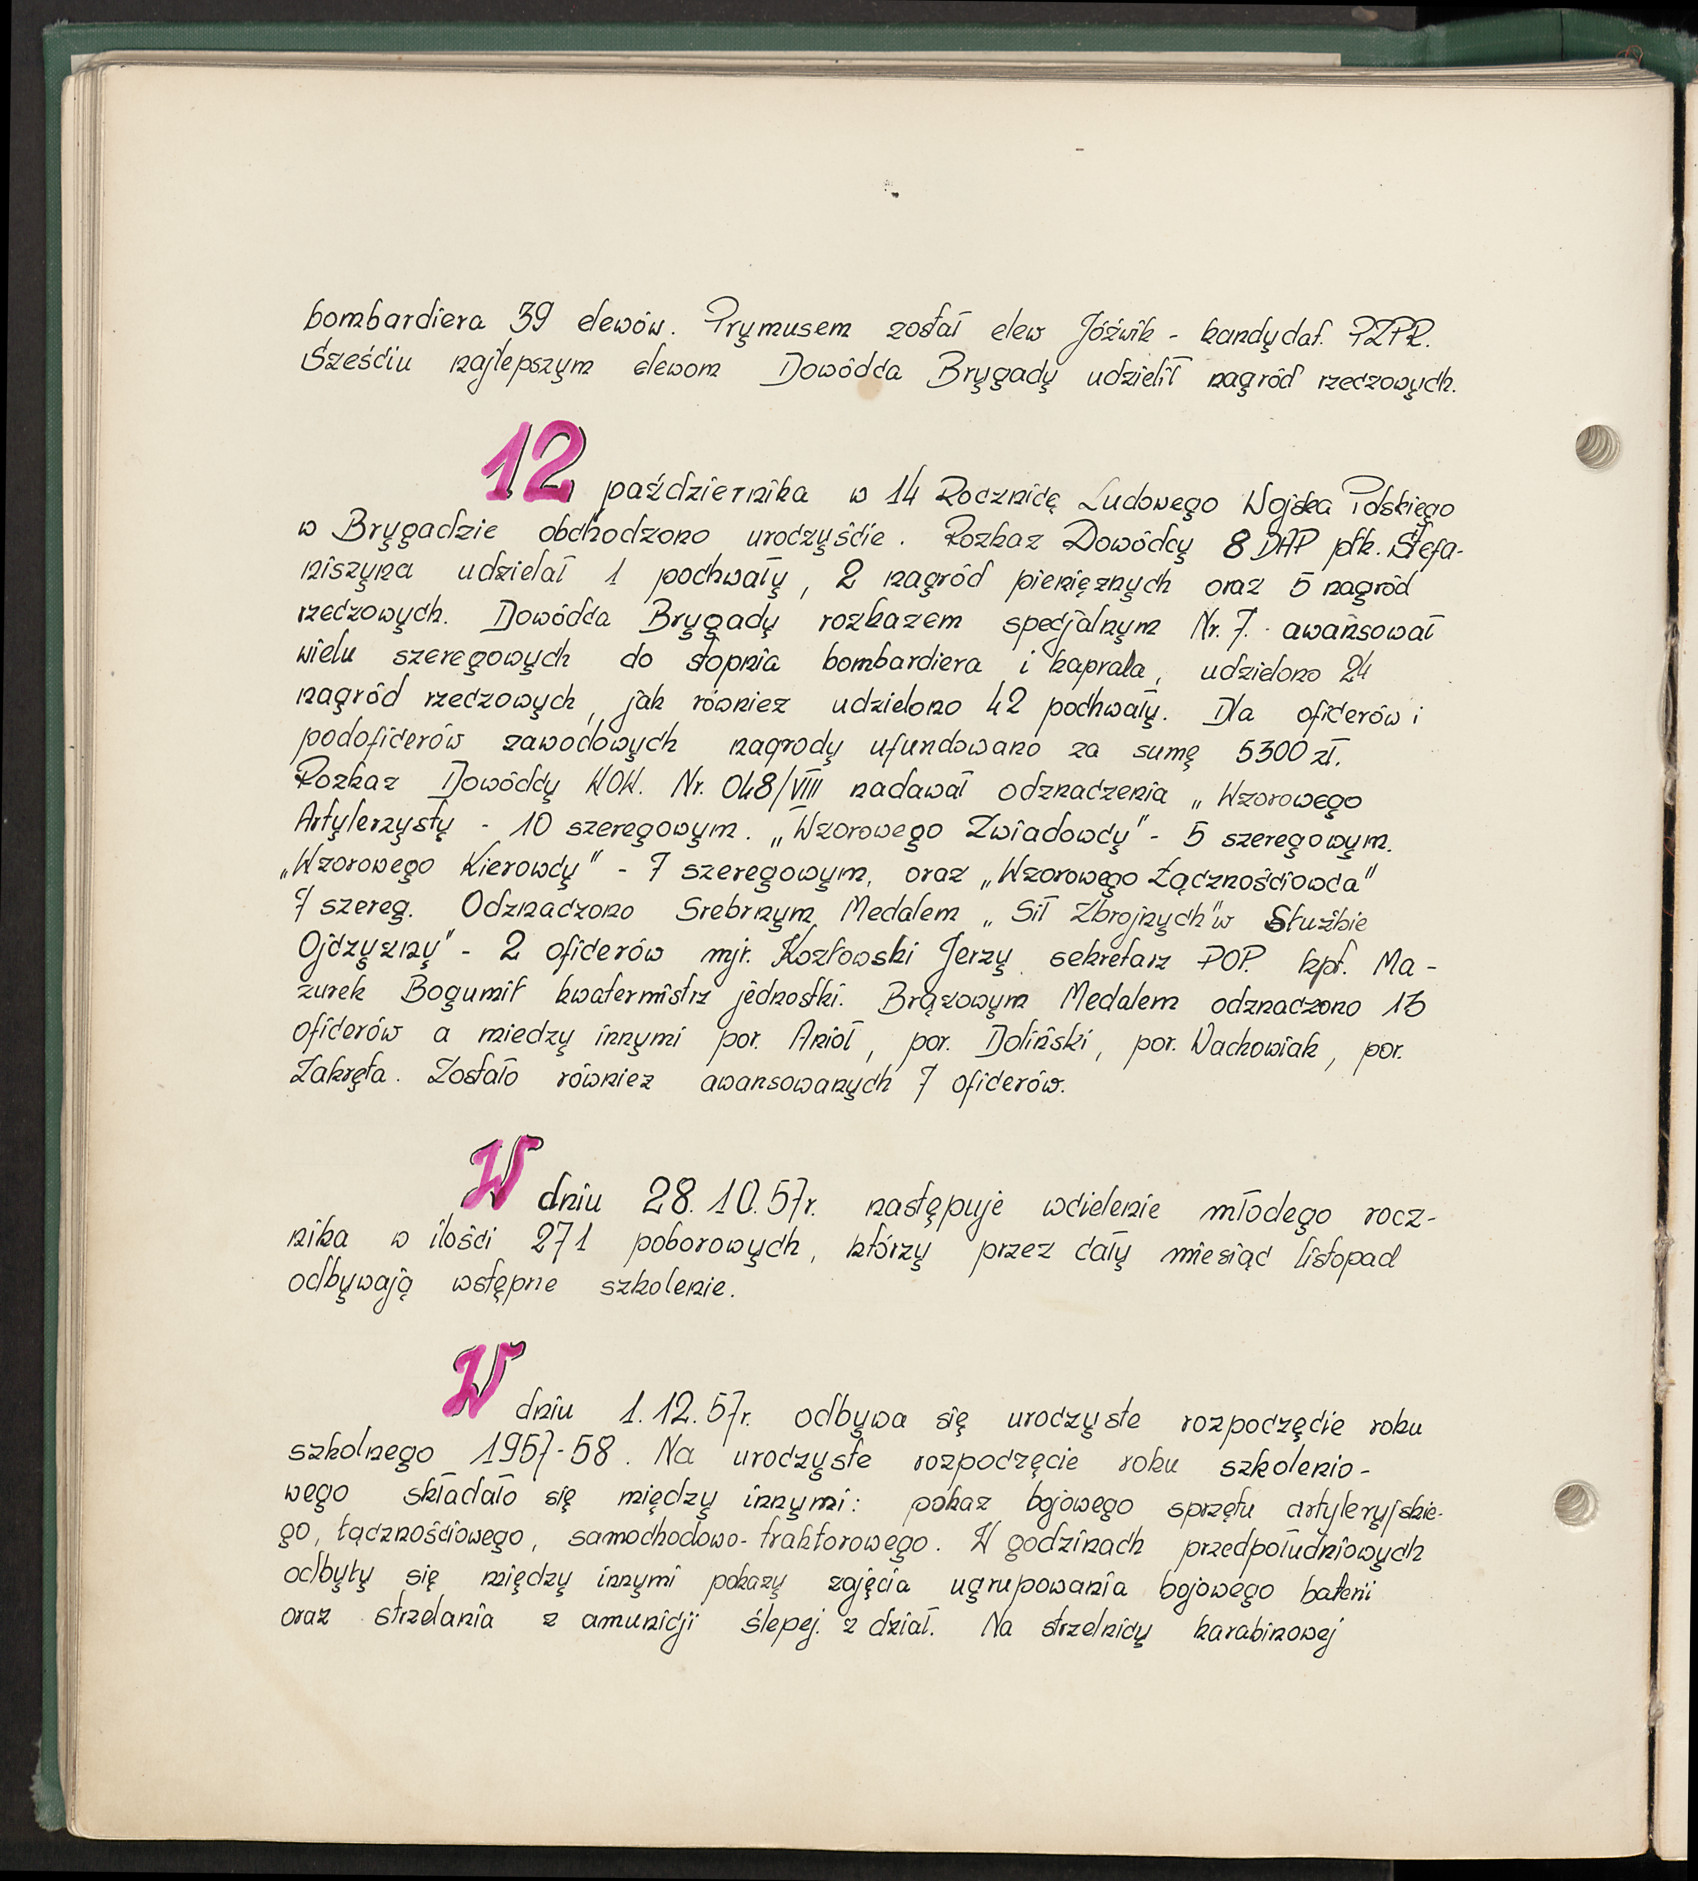 bombardiera 39 elewów. Prymusem został elew Jóźwik - kandydat. PZPR.
Sześciu najlepszym elewom Dowódca Brygady udzielił nagród rzeczowych.
12 października w 14 Rocznicę Ludowego Wojska Polskiego
w Brygadzie obchodzono uroczyście. Rozkaz Dowódcy 8 DAP płk. Stefa-
niszyna udzielał 1 pochwały, 2 nagród pieniężnych oraz 5 nagród
rzeczowych. Dowódca Brygady rozkazem specjalnym Nr. 7. awansował
wielu szeregowych do stopnia bombardiera i kaprala, udzielono 24
nagród rzeczowych, jak równiez udzielono 42 pochwały. Dla oficerów i
podoficerów zawodowych nagrody ufundowano za sumę 5300 zł.
Rozkaz Dowódcy WOW. Nr. 048/VIII nadawał odznaczenia „Wzorowego
Artylerzysty - 10 szeregowym. „Wzorowego Zwiadowcy" - 5 szeregowym.
„Wzorowego Kierowcy" - 7 szeregowym, oraz „Wzorowego Łącznościowca"
7 szereg. Odznaczono Srebrnym Medalem „Sił Zbrojnych" w Służbie
Ojczyzny" - 2 oficerów mjr. Kozłowski Jerzy sekretarz POP. kpt. Ma-
zurek Bogumił kwatermistrz jednostki. Brązowym Medalem odznaczono 13
oficerów a miedzy innymi por. Anioł, por. Doliński, por. Wachowiak, por.
Zakręta. Zostało równiez awansowanych 7 oficerów.
W dniu 28.10.57r. następuje wcielenie młodego rocz-
nika w ilości 271 poborowych, którzy przez cały miesiąc listopad
odbywają wstępne szkolenie.
W dniu 1.12.57r. odbywa się uroczyste rozpoczęcie roku
szkolnego 1957-58. Na uroczyste rozpoczęcie roku szkolenio-
wego składało się między innymi: pokaz bojowego sprzętu artyleryjskie-
go, łącznościowego, samochodowo-traktorowego. W godzinach przedpołudniowych
odbyły się między innymi pokazy zajęcia ugrupowania bojowego baterii
oraz strzelania z amunicji ślepej. z dział. Na strzelnicy karabinowej